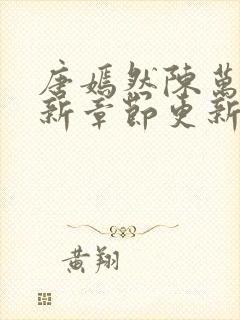 唐嫣然陳萬
新章節更新
黄翔